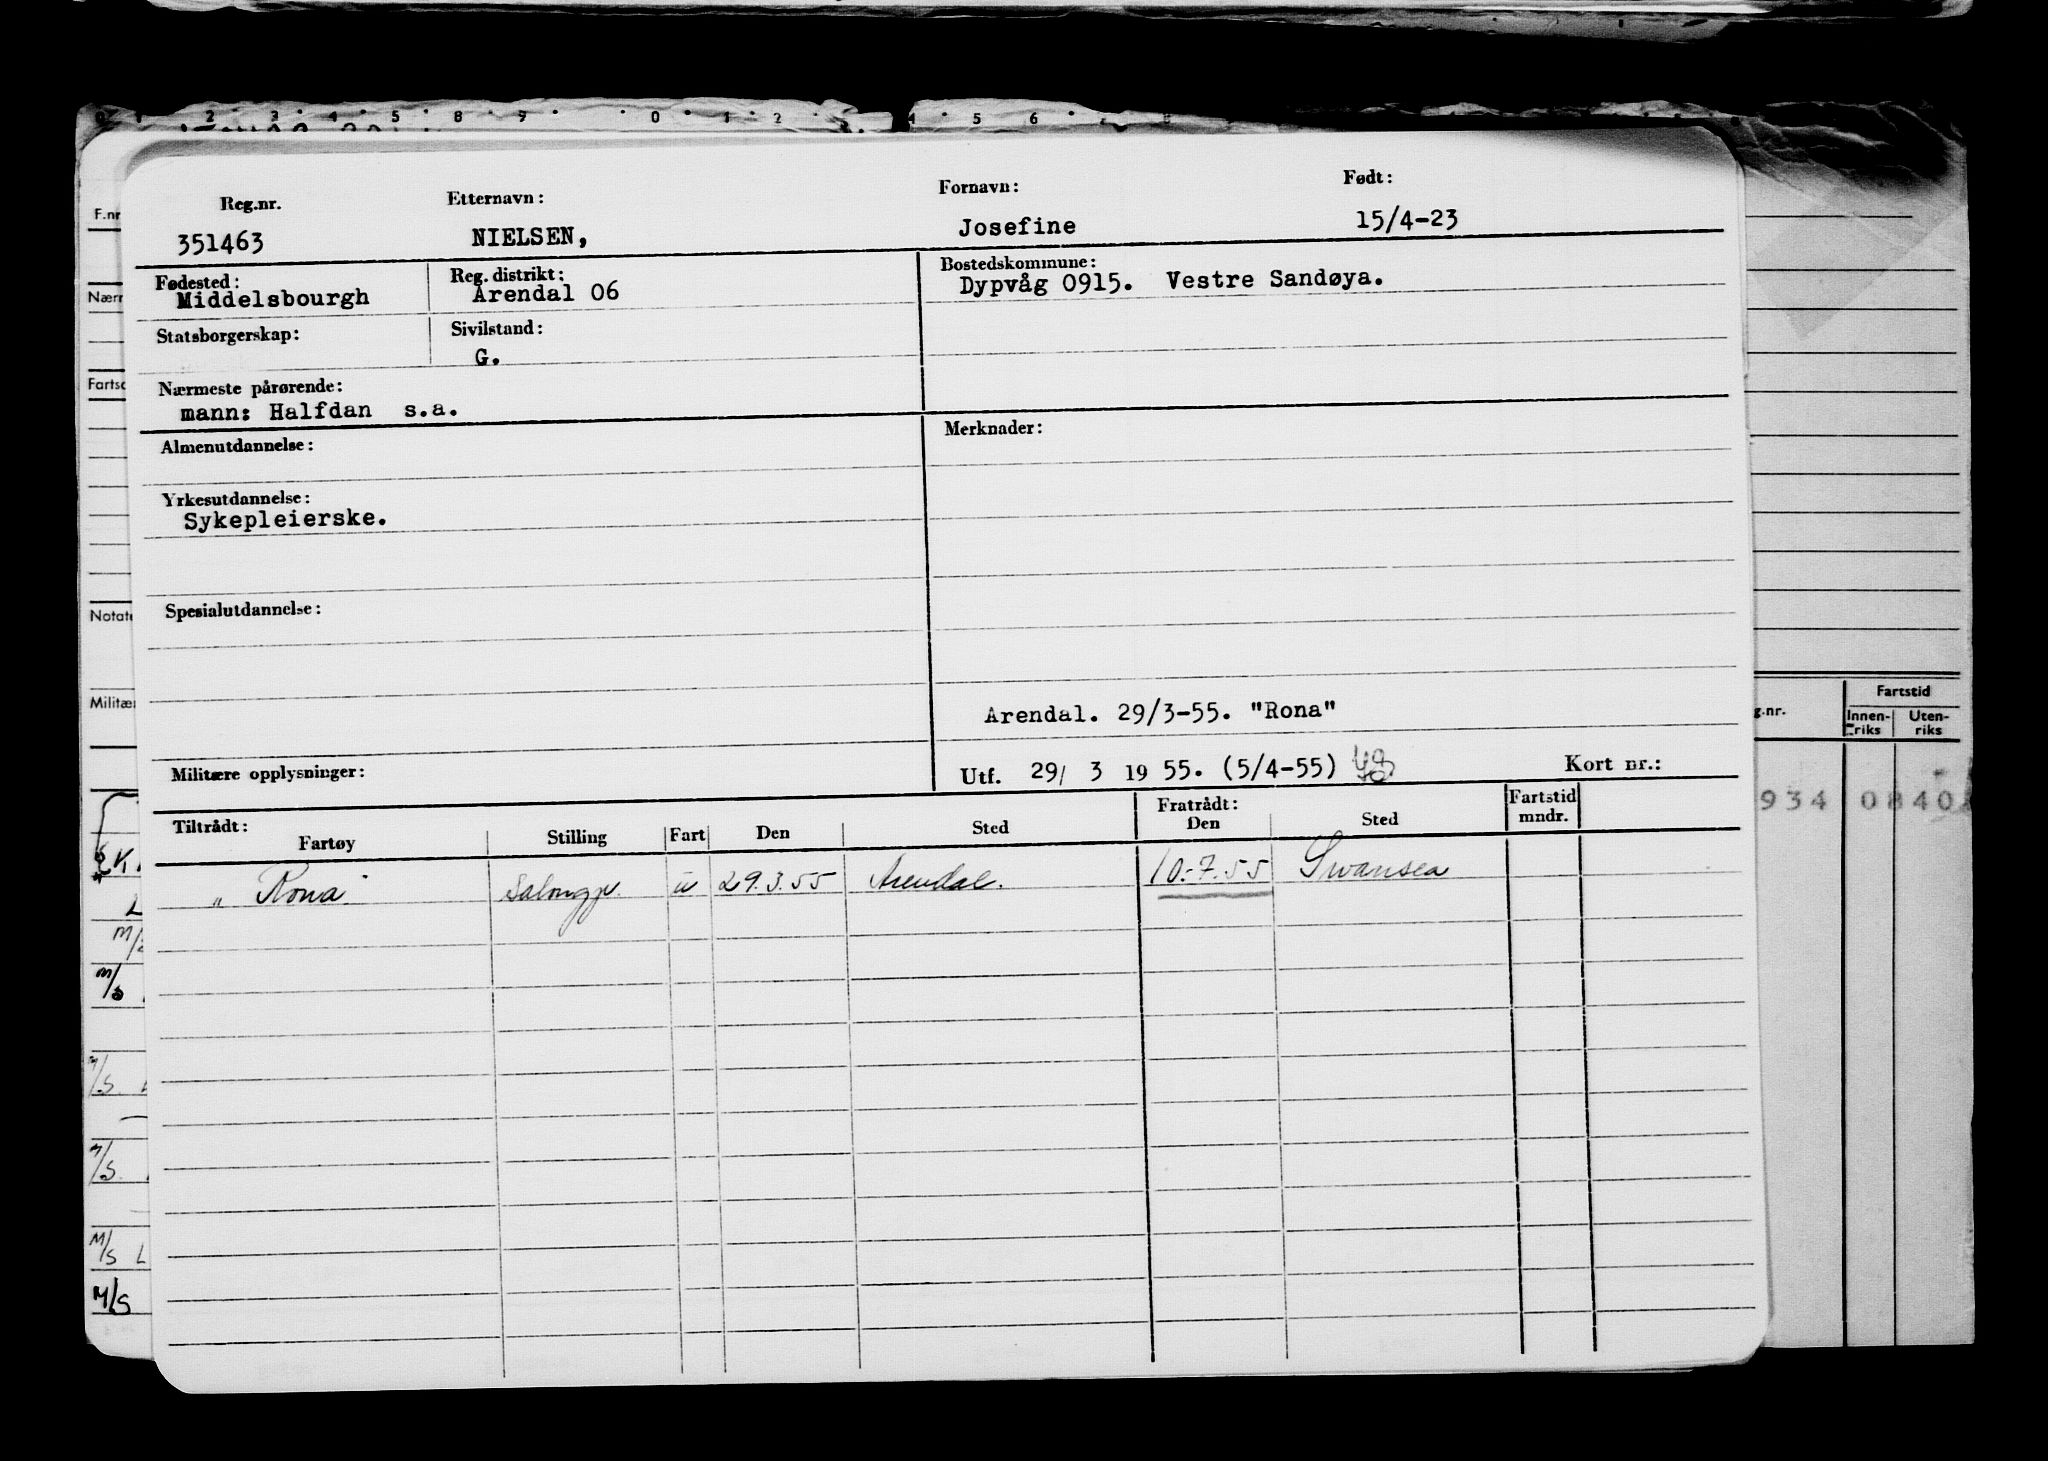 0 1 2 3 4 5 8 9 0 1 2 3 4 5 6 7 8
Reg.nr. Etternavn: Fornavn: Født:
351463 NIELSEN, Josefine 15/4-23
Fødested: Reg. distrikt: Bostedskommune:
Middelsbourgh Arendal 06 Dypvåg 0915. Vestre Sandøya.
Statsborgerskap: Sivilstand:
G.
Nærmeste pårørende:
mann: Halfdan s.a.
Almenutdannelse: Merknader:
Yrkesutdannelse:
Sykepleierske.
Spesialutdannelse:
Arendal. 29/3-55. "Rona"
Militære opplysninger: Utf. 29/ 3 19 55. (5/4-55) Kort nr.:
Tiltrådt: Fratrådt: Fartstid
Fartøy Stilling Fart Den Sted Den Sted mndr.
"Rona" Salongpr. u 29.3.55 Arendal. 10.-7.55 Swansea
F.nr
Nærr
Fartsc
Notate
Militær
g.nr. Fartstid
Innen-riks Uten-riks
934 0840
M/S
M/S
M/S
M/S L
M/S